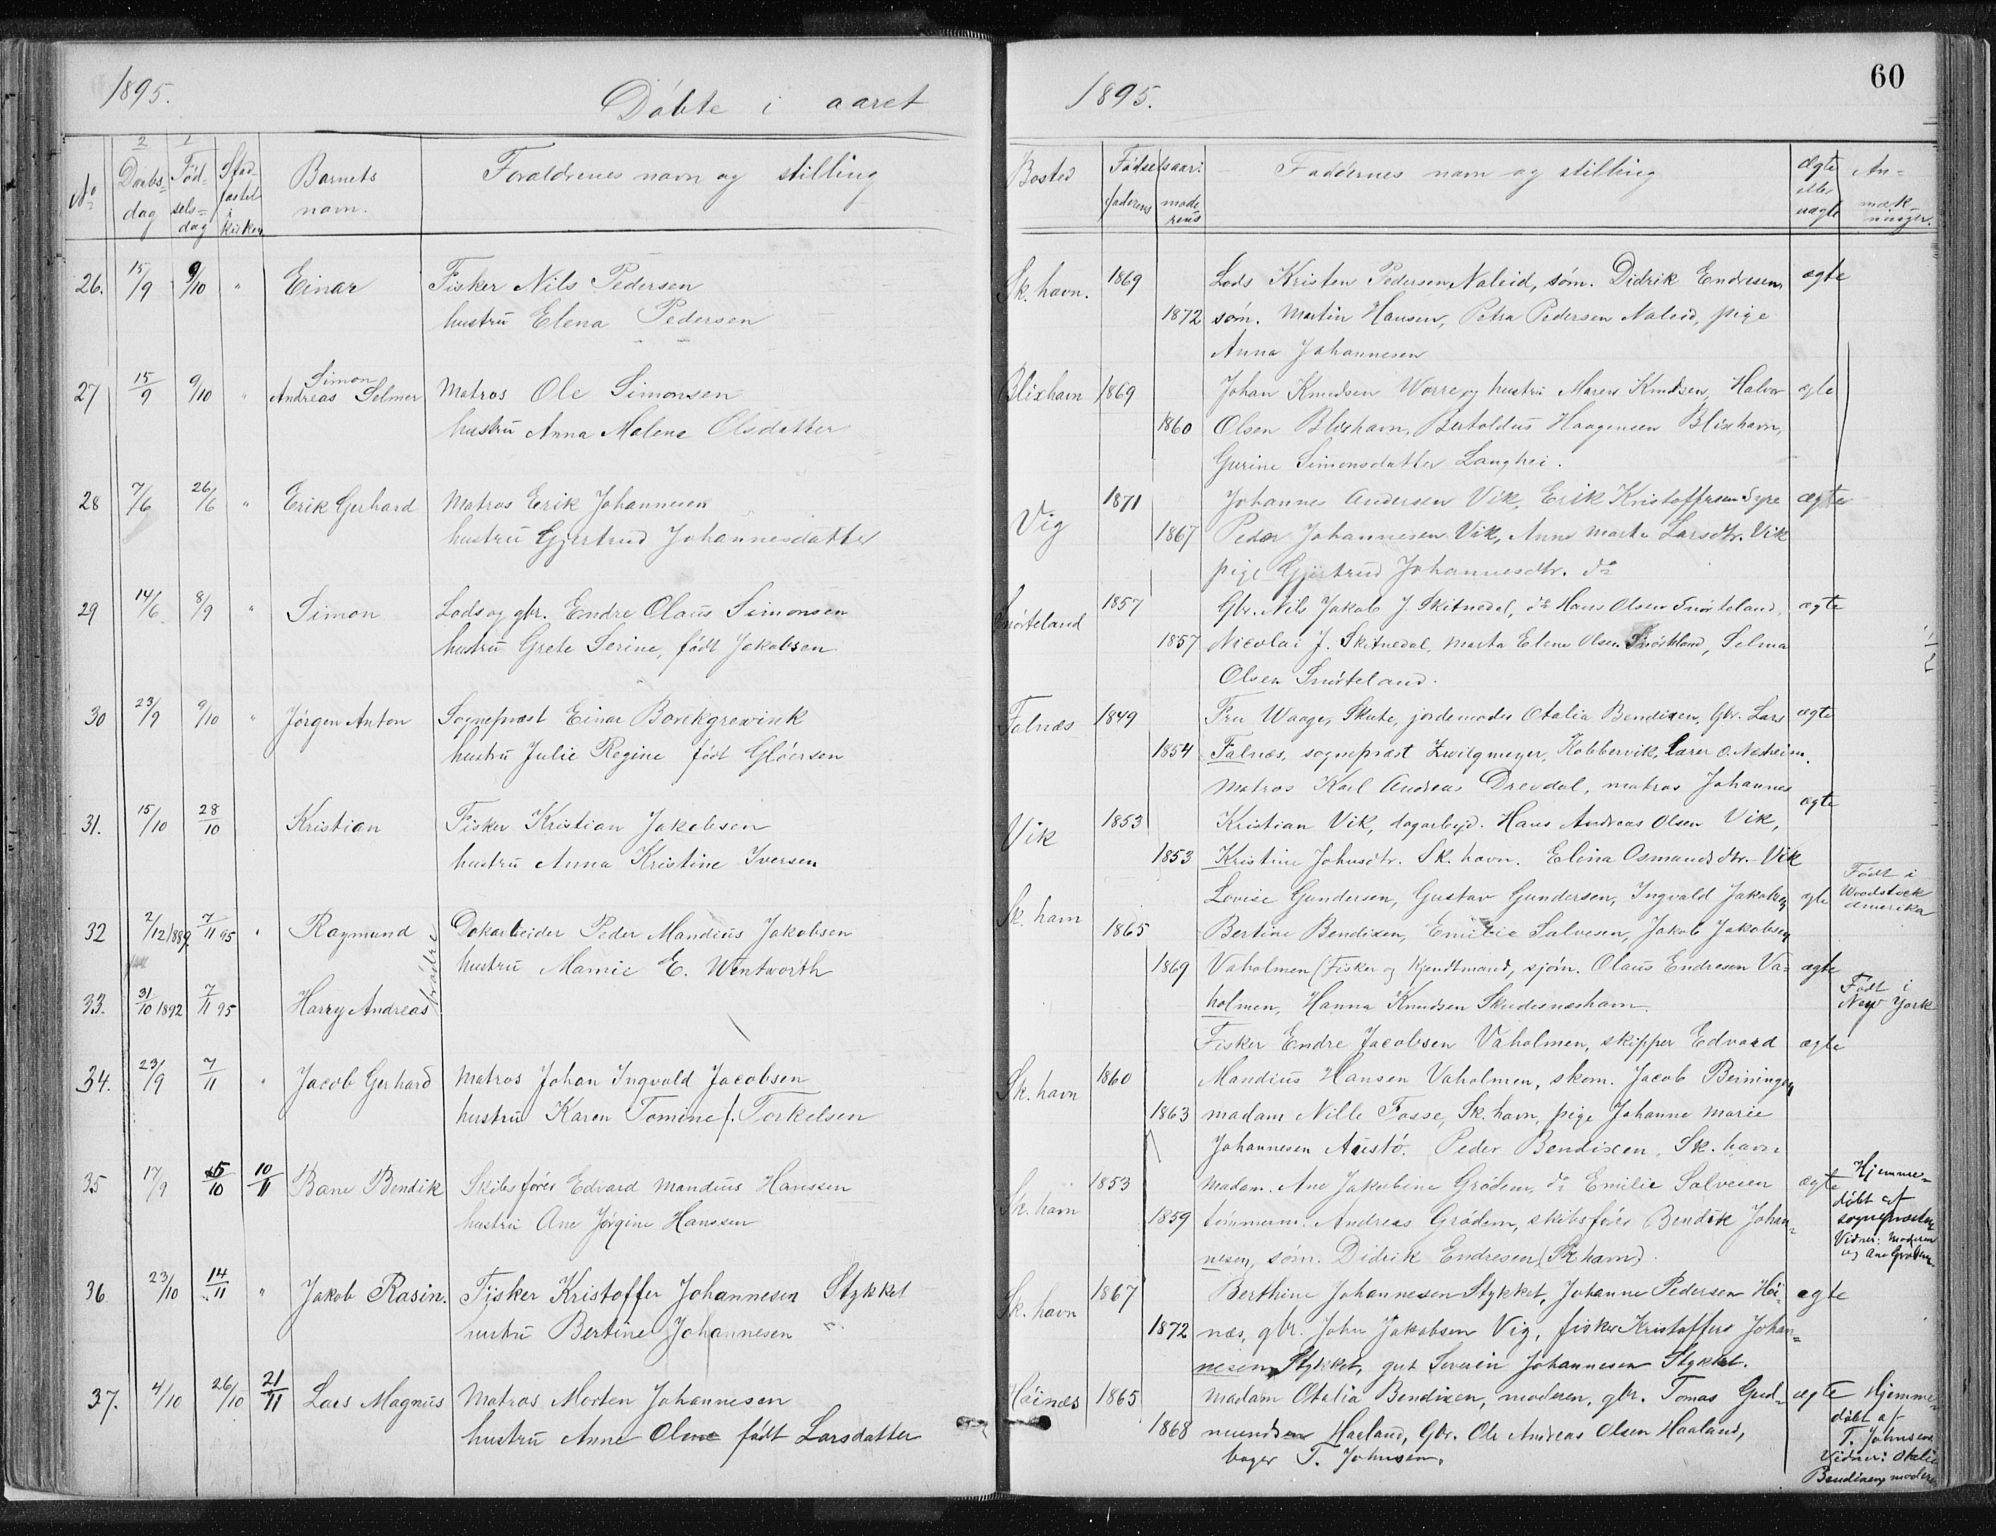 1895.
Döbte i aaret
1895.
60
No
2
Daabs-
dag
1
Fød-
sels-
dag
Stad-
fæstet
i
kirken
Barnets
navn.
Forældrenes navn og stilling
Bosted
Fødselsaar:
faderens
mode
rens
Faddernes navn og stilling
Ægte
eller
uægte
An-
mærk
ninger.
26. 15/9 9/10 " Einar Fisker Nils Pedersen
hustru Elena Pedersen
Sk. havn. 1869 Lods Kristen Pedersen Naleid, søm. Didrik Endresen, ægte
1872 søm. Martin Hansen, Petra Pedersen Naleid, pige
Anna Johannesen
27 15/9 9/10 " Simon
Andreas Selmer Matros Ole Simonsen
hustru Anna Malene Olsdatter
Blixhavn 1869 Johan Knudsen Warre og hustru Maren Knudsen, Halvor ægte
1860 Olsen Blixhavn, Bertoldus Haagensen Blixhavn,
Gurine Simonsdatter Langhei.
28 7/6 26/6 " Erik Gerhard Matros Erik Johannesen
hustru Gjertrud Johannesdatter
Vig 1871 Johannes Andersen Vik, Erik Kristoffersen Syre ægte
1867 Peder Johannesen Vik, Anne Marta Larsdtr. Vik
pige Gjertrud Johannesdtr. do
29 14/6 8/9 " Simon Lods og gbr. Endre Olaus Simonsen
hustru Grete Serine, født Jakobsen
Snørteland 1857 Gbr. Nils Jakob J. Skitnedal, do Hans Olsen Snørteland, ægte
1857 Nicolai J. Skitnedal, Marta Elene Olsen Snørteland, Selma
Olsen Snørteland.
30 23/9 9/10 " Jörgen Anton Sognepræst Einar Borchgrevink
hustru Julie Regine født Glöersen
Falnæs 1849 Fru Waage, Skute, jordemoder Otalia Bendixen, Gbr. Lars ægte
1854 Falnæs, sognepræst Zwilgmeyer, Kobbervik, Lærer O. Næsheim.
Matros Karl Andreas Drevdal, matros Johannes
31. 15/10 28/10 Kristian Fisker Kristian Jakobsen
hustru Anna Kristine Iversen
Vik 1853 Kristian Vik, dagarbejd. Hans Andreas Olsen Vik, ægte
1853 Kristine Johnsdtr. Sk. havn. Elina Osmundsdtr. Vik
32 2/12 1889 7/11 95 " Raymund Dokarbeider Peder Mandius Jakobsen
hustru Mamie E. Wentworth
brødre
Sk. havn Lovise Gundersen, Gustav Gundersen, Ingvald Jakobsen ægte Født i
Woodstock
Amerika
1865 Bertine Bendixen, Emilie Salvesen, Jakob Jakobsen
33. 31/10 1892 7/11 95 Harry Andreas
1869 Vaholmen (Fisker og Kjendtmand, sjöm. Olaus Endresen Va- ægte
holmen, Hanna Knudsen Skudesneshavn. Født i
New York
34. 23/9 7/11 " Jacob Gerhard Matros Johan Ingvald Jacobsen
hustru Karen Tomine f. Torkelsen
Fisker Endre Jacobsen Vaholmen, skipper Edvard ægte
Sk. havn 1860 Mandius Hansen Vaholmen, skom. Jacob Beiningen
1863 madam Nille Fosse, Sk. havn, pige Johanne Marie
Johannesen Austö. Peder Bendixen, Sk. havn
35 17/9 5/10 10/11 Bane Bendik Skibsfører Edvard Mandius Hanssen
hustru Ane Jörgine Hanssen
Sk. havn 1853 Madam. Ane Jakobine Grödem, do Emilie Salvesen ægte Hjemme-
döbt af
sognepræsten
Vidner: Moderen
og Ane Grödem
1859 tömmerm. Andreas Grödem, skibsfører Bendik Johan-
nesen, søm. Didrik Endresen (Sk. havn).
36 23/10 14/11 " Jakob Rasin. Fisker Kristoffer Johannesen Stykket
hustru Bertine Johannesen "
Sk. havn 1867 Berthine Johannesen Stykket, Johanne Pedersen Höi- ægte
1872 næs, gbr. John Jakobsen Vig, fisker Kristoffer Johan-
nesen Stykket, gut Severin Johannesen Stykket.
37. 4/10 26/10 21/11 Lars Magnus Matros Morten Johannesen
hustru Anne Oline født Larsdatter
Höinæs 1865 Madam Otalia Bendixen, moderen, gbr. Tomas Gud- ægte Hjemme-
döbt af
T. Johnsen
Vidner: Otalie
Bendixen, moderen
1868 mundsen Haaland, Gbr. Ole Andreas Olsen Haaland,
bager T. Johnsen.